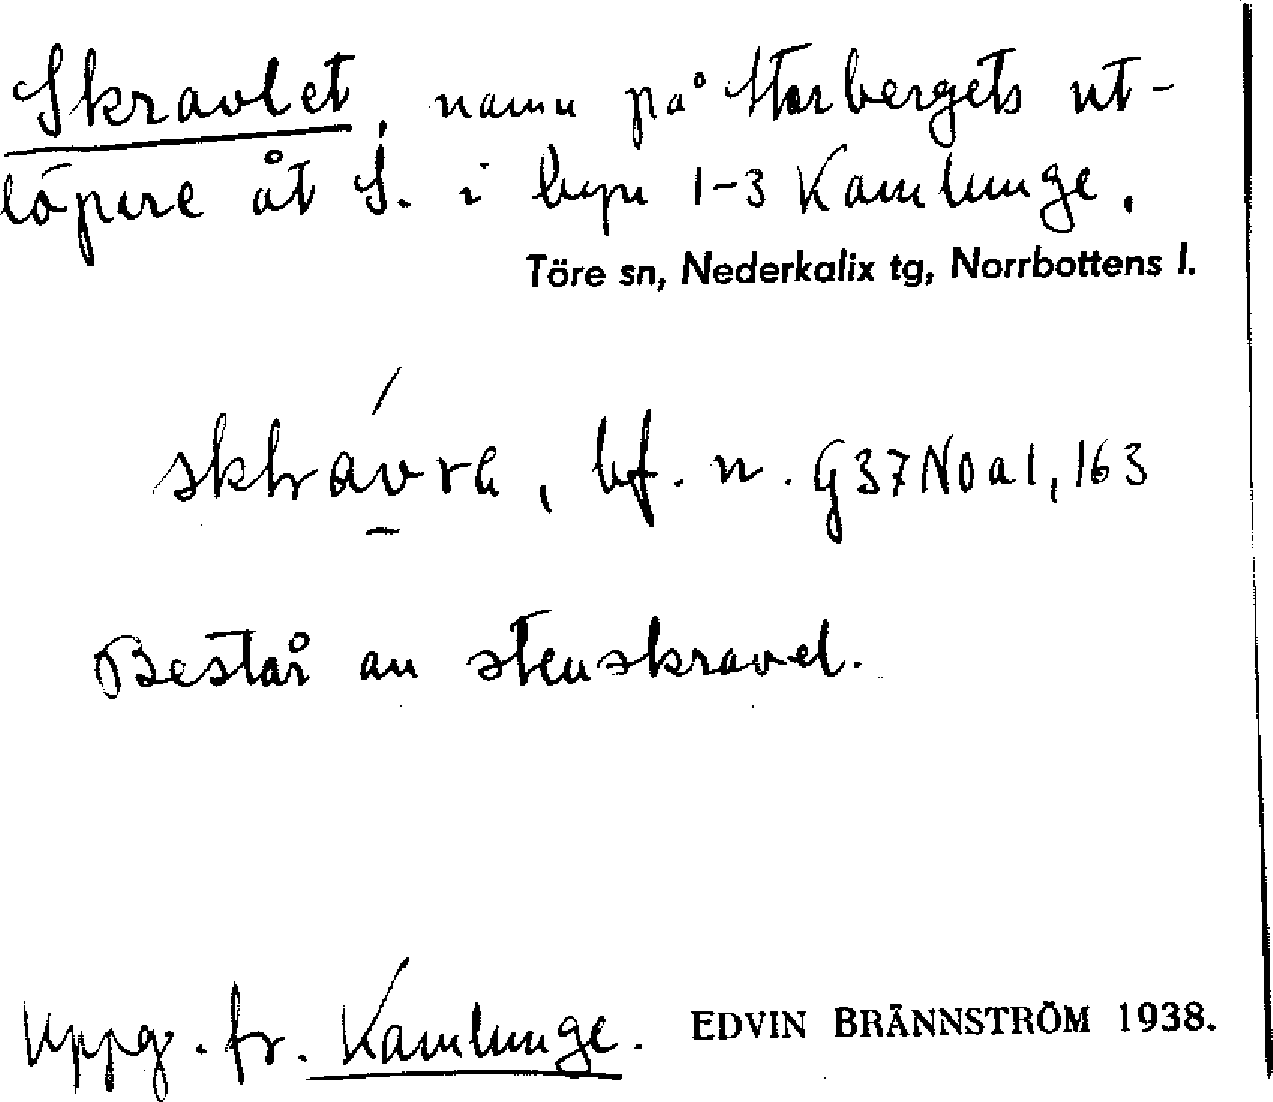 Skravlet, namn på Storbergets ut-
löpare åt S. i byn 1-3 Kamlunge.
Töre sn, Nederkalix tg, Norrbottens l.
bf. n. G37 No a1, 163
Består av stenskravel.
Uppg. fr. Kamlunge. EDVIN BRÄNNSTRÖM 1938.